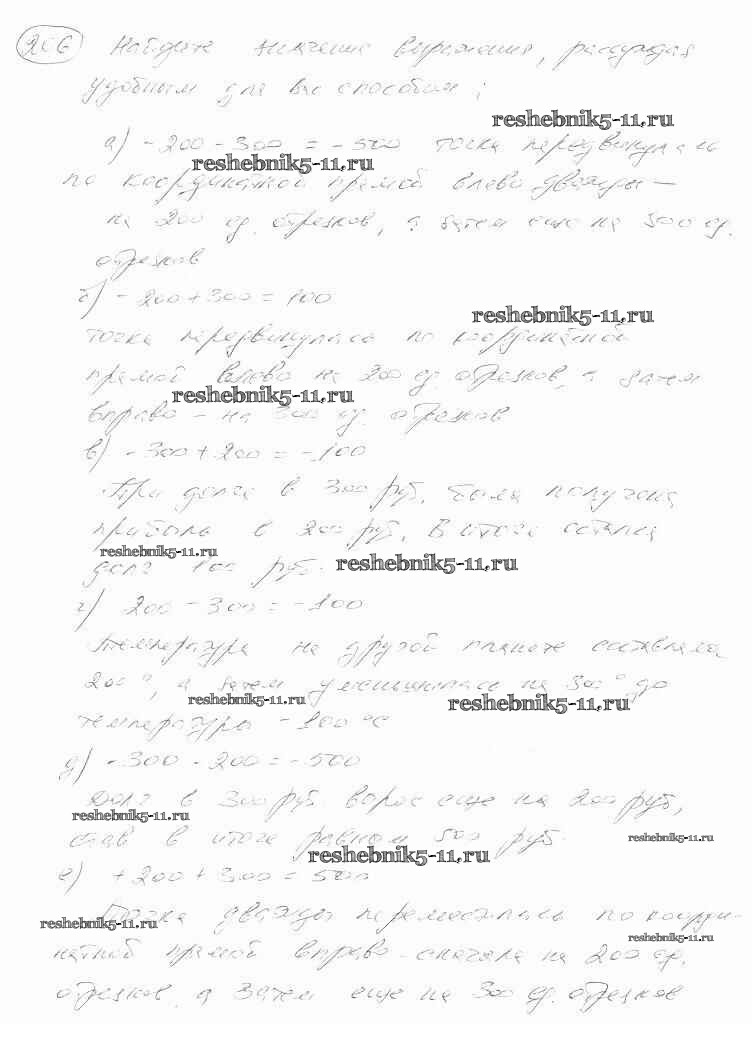 206 Найдите значение выражения, рассуждая
удобным для вас способом:
reshebnik5-11.ru
а) -200 - 300 = -500 точка передвинулась
reshebnik5-11.ru
по координатной прямой влево дважды —
на 200 ед. отрезков, а затем еще на 300 ед.
отрезков
б) -200 + 300 = 100
reshebnik5-11.ru
точка передвинулась по координатной
прямой влево на 200 ед. отрезков, а затем
reshebnik5-11.ru
вправо - на 300 ед. отрезков
в) -300 + 200 = -100
При долге в 300 руб. была получена
прибыль в 200 руб. В итоге остался
reshebnik5-11.ru
reshebnik5-11.ru
долг 100 руб.
г) 200 - 300 = -100
Температура на другой планете составляла
200°, а затем уменьшилась на 300° до
reshebnik5-11.ru
reshebnik5-11.ru
температуры -100°С
д) -300 - 200 = -500
Долг в 300 руб. вырос еще на 200 руб,
reshebnik5-11.ru
став в итоге равным 500 руб.
reshebnik5-11.ru
reshebnik5-11.ru
е) +200 + 300 = 500
Точка дважды переместилась по коорди-
reshebnik5-11.ru
reshebnik5-11.ru
натной прямой вправо - сначала на 200 ед.
отрезков, а затем еще на 300 ед. отрезков